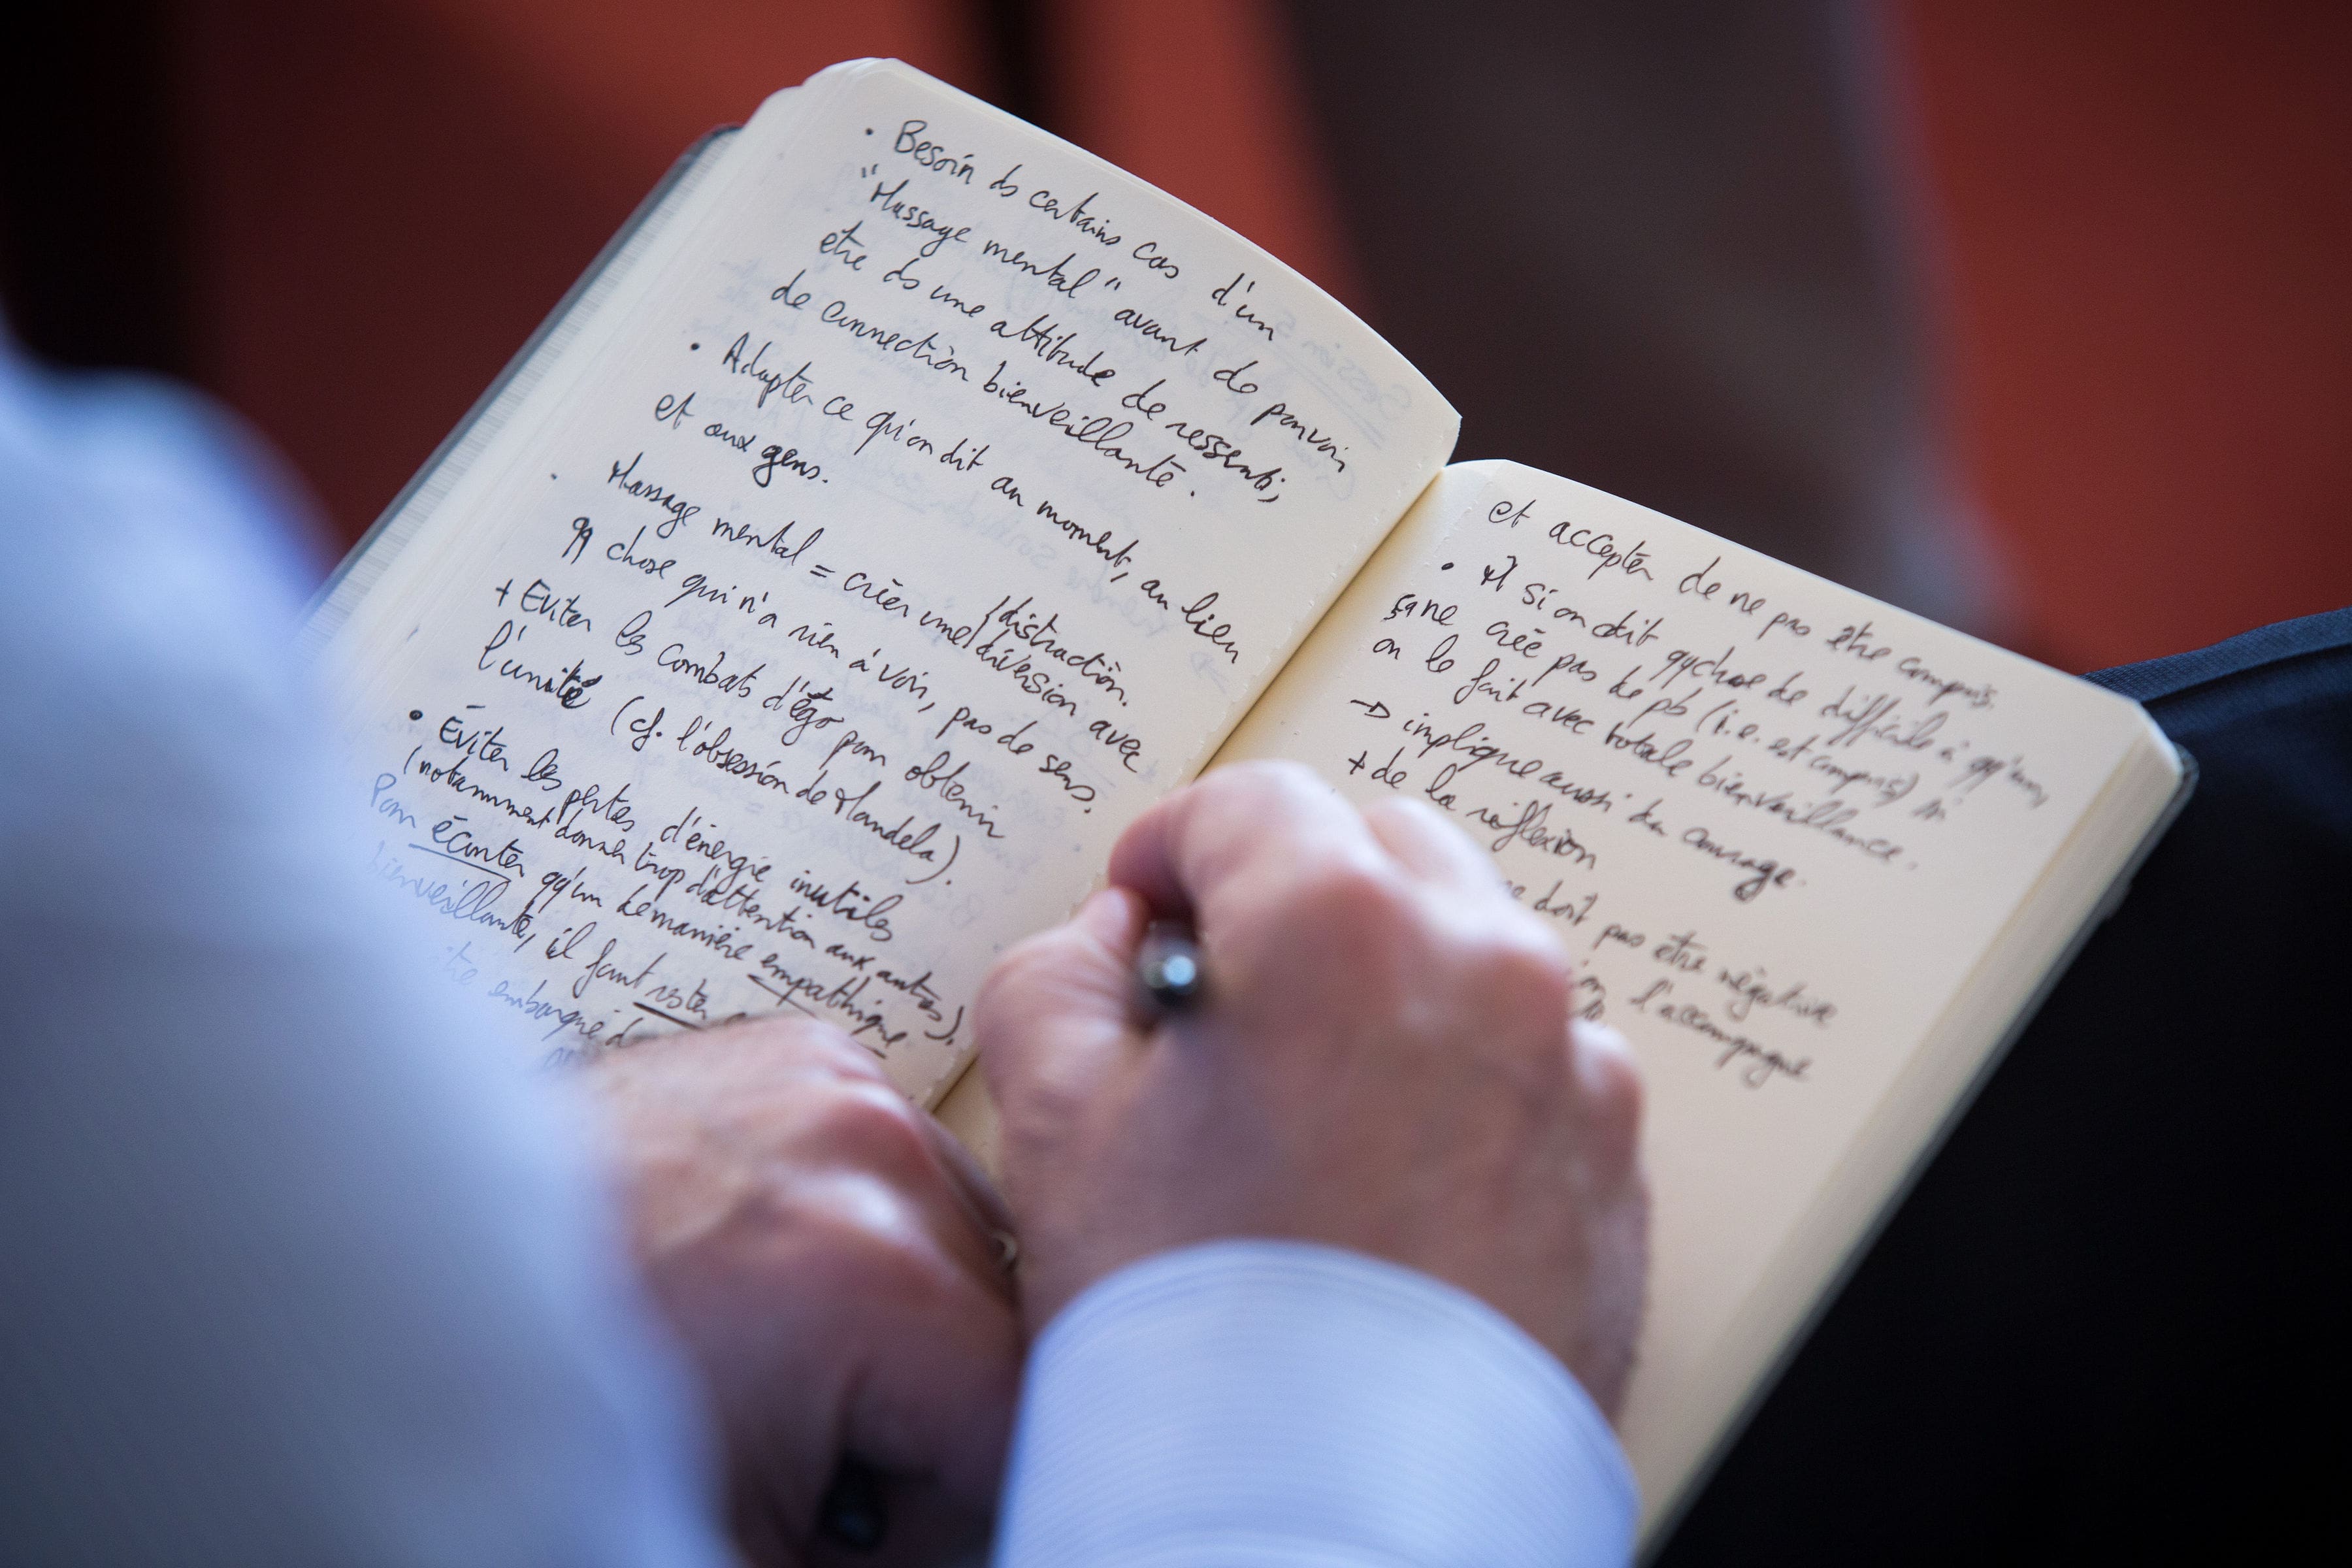 • Besoin ds certains cas d'un
"Massage mental" avant de pouvoir
être ds une attitude de ressenti,
de connection bienveillante.
• Adapter ce qu'on dit au moment, au lieu
et aux gens.
• Massage mental = créer une { distraction.
diversion avec
qq chose qui n'a rien à voir, pas de sens.
+ Eviter les combats d'égo pour obtenir
l'unité (cf. l'obsession de Mandela).
• Éviter les pertes d'énergie inutiles
(notamment donner trop d'attention aux autres).
Pour écouter qq'un de manière empathique
bienveillante, il faut rester
embarqué d
et accepter de ne pas être compris.
• si on dit qqchose de difficile à qq'un,
ça ne crée pas de pb (i.e. est compris) si
on le fait avec totale bienveillance.
→ implique aussi du courage.
+ de la réflexion
ne doit pas être négative
l'accompagne